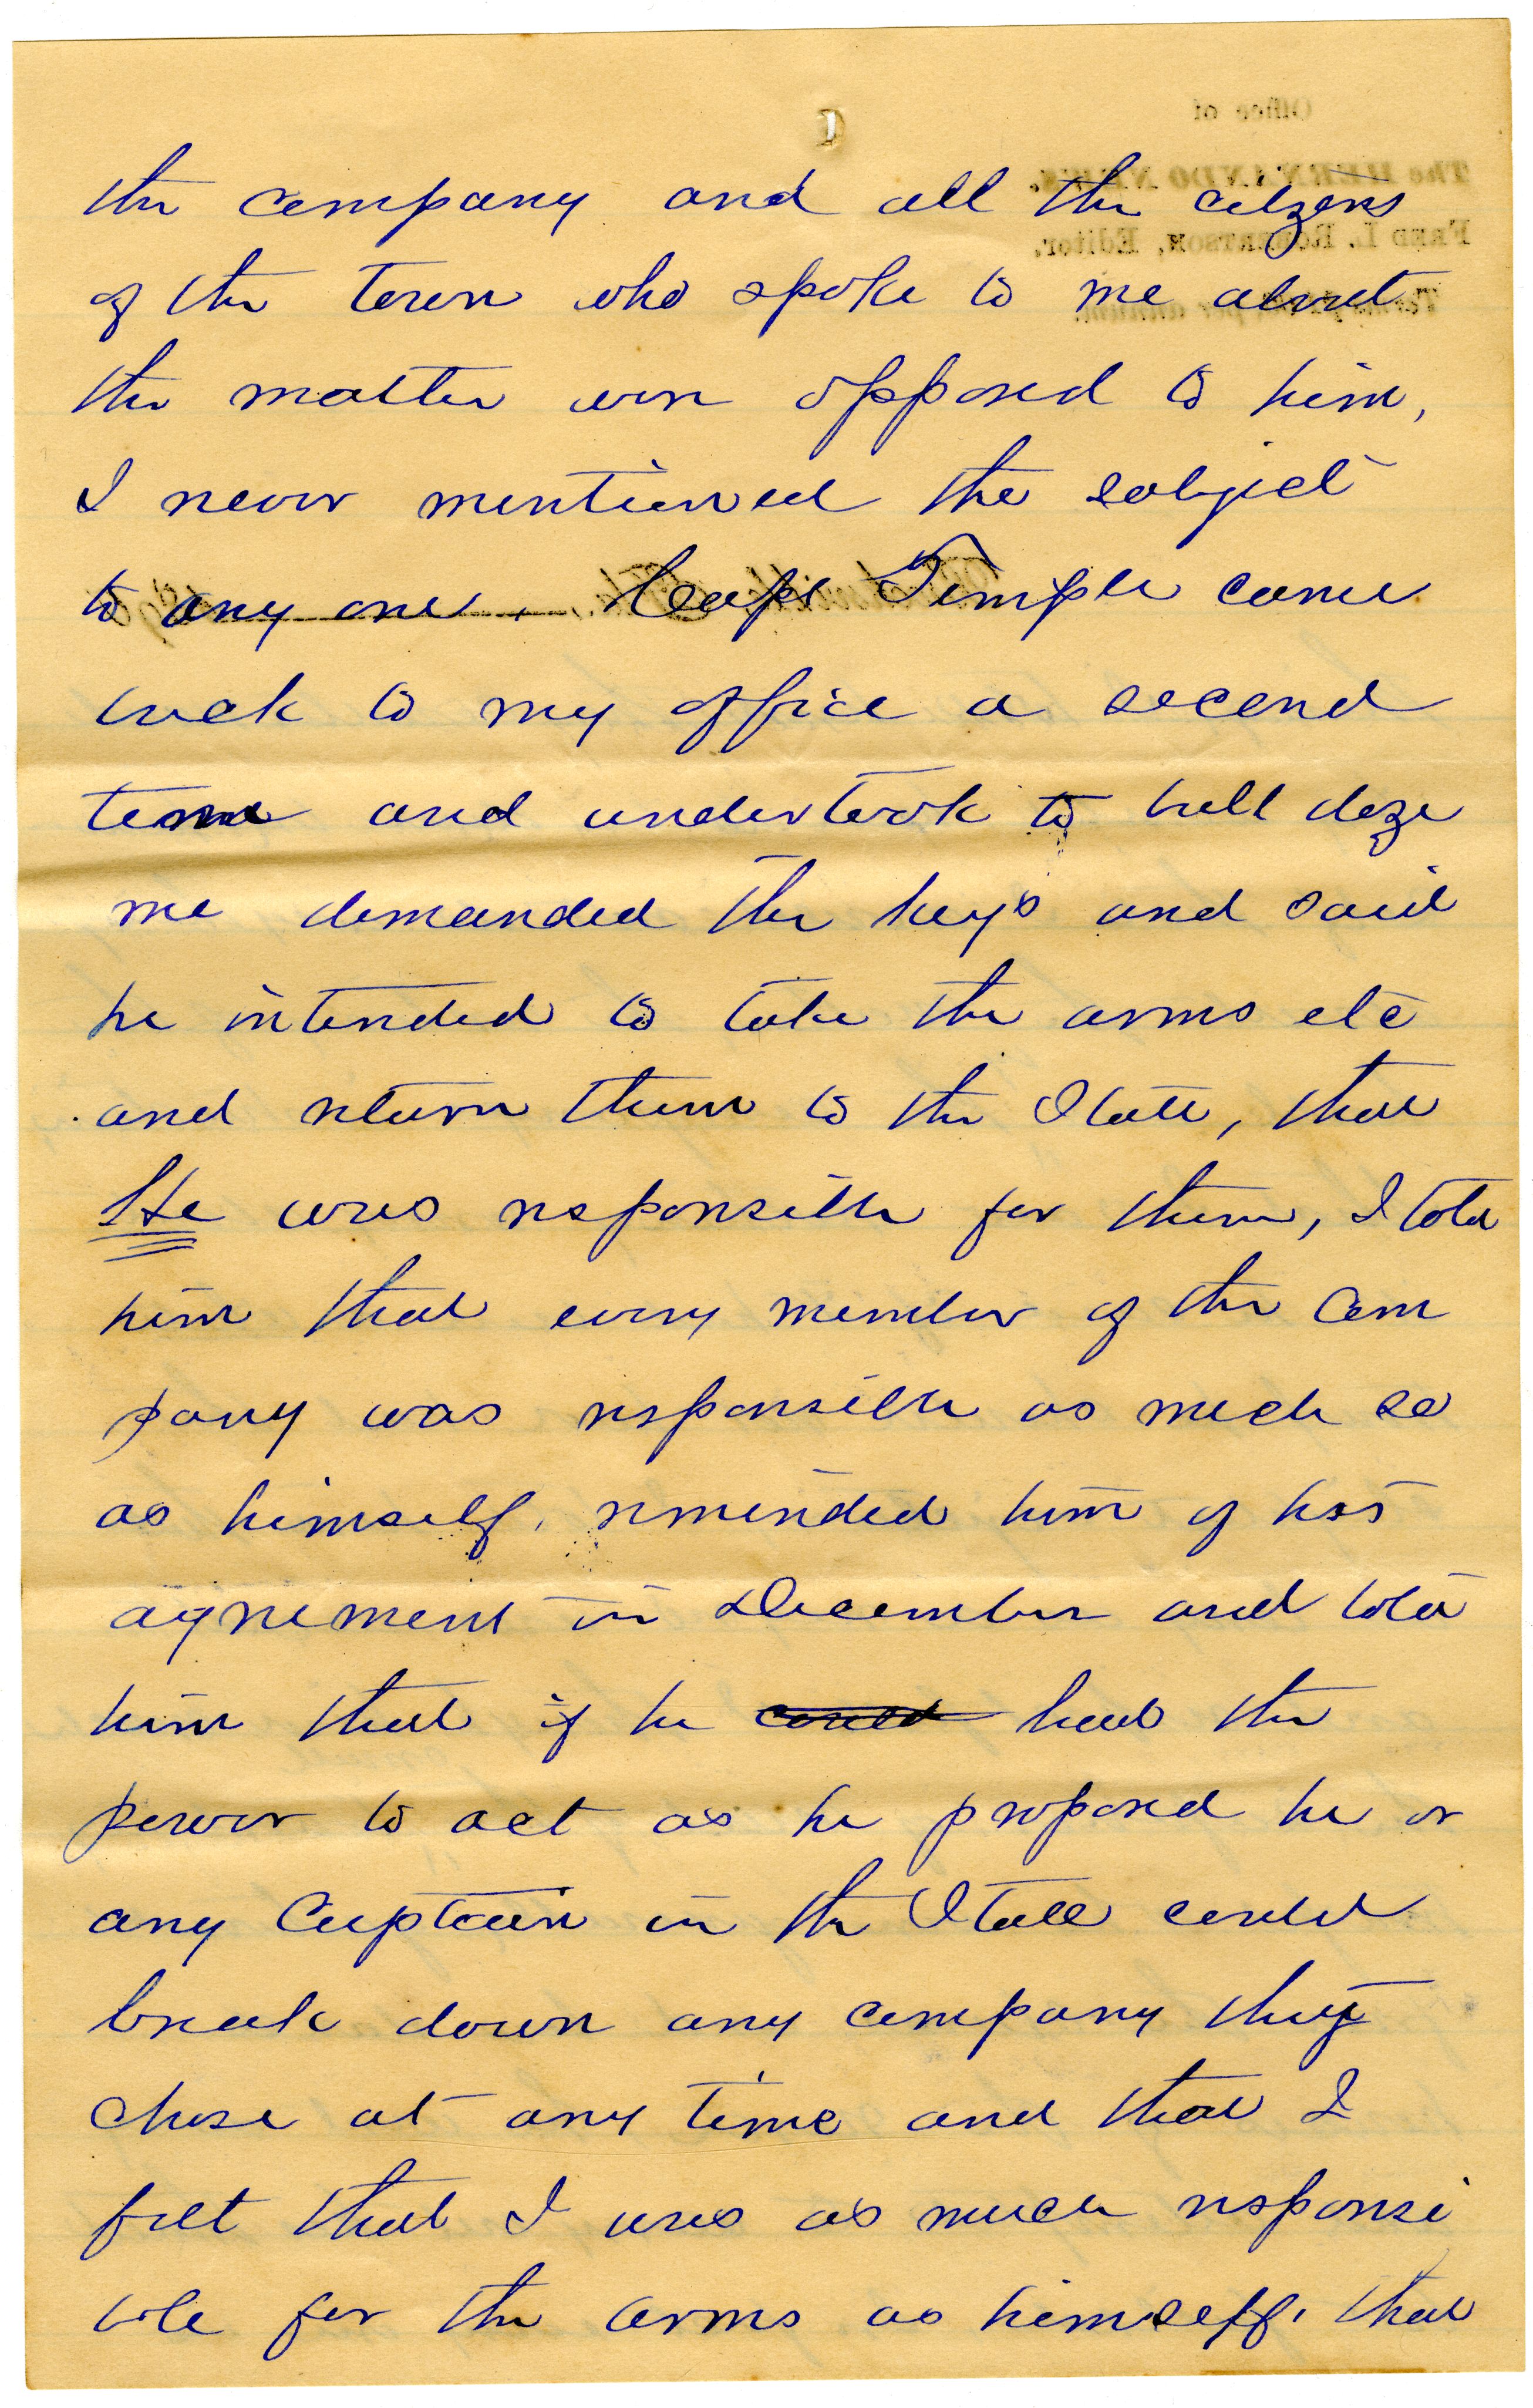 the company and all the citizens
of the town who spoke to me about
the matter were opposed to him,
I never mentioned the subject
to any one. Capt Temple came
back to my office a second
time and undertook to bull doze
me demanded the keys and said
he intended to take the arms etc
and return them to the State, that
He was responsible for them, I told
him that every member of the com
pany was responsible as much so
as himself, reminded him of his
agreement in December and told
him that if he could had the
power to act as he proposed he or
any Captain in the State could
break down any company they
chose at any time and that I
felt that I was as much responsi
ble for the arms as himself, that
Office of
The HERNANDO NEWS.
FRED L. ROBERTSON, Editor.
per annum.